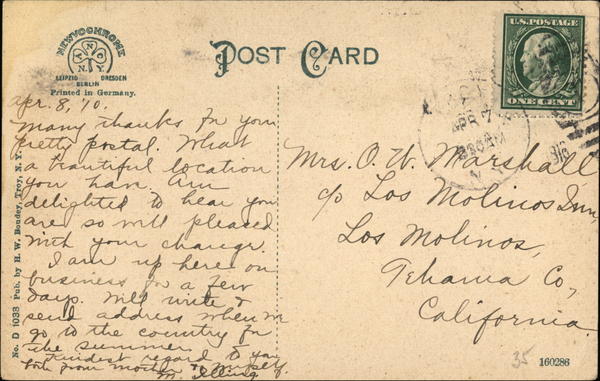 NEWVOCHROME
T N C
N.Y.
LEIPZIG DRESDEN
BERLIN
Printed in Germany.
POST CARD
U.S. POSTAGE
ONE CENT
APR 7
Apr. 8, '10.
Many thanks for your
pretty postal. What
a beautiful location
you have. Am
delighted to hear you
are so well pleased
with your change.
I am up here on
business for a few
days. Will write &
send address when we
go to the country for
the summer.
Kindest regard to you
both from mother & myself.
M.
Mrs. O. W. Marshall
c/o Los Molinos Inn,
Los Molinos,
Tehama Co,
California.
35
160286
No. D 1038 Pub. by H. W. Boudey, Troy, N. Y.